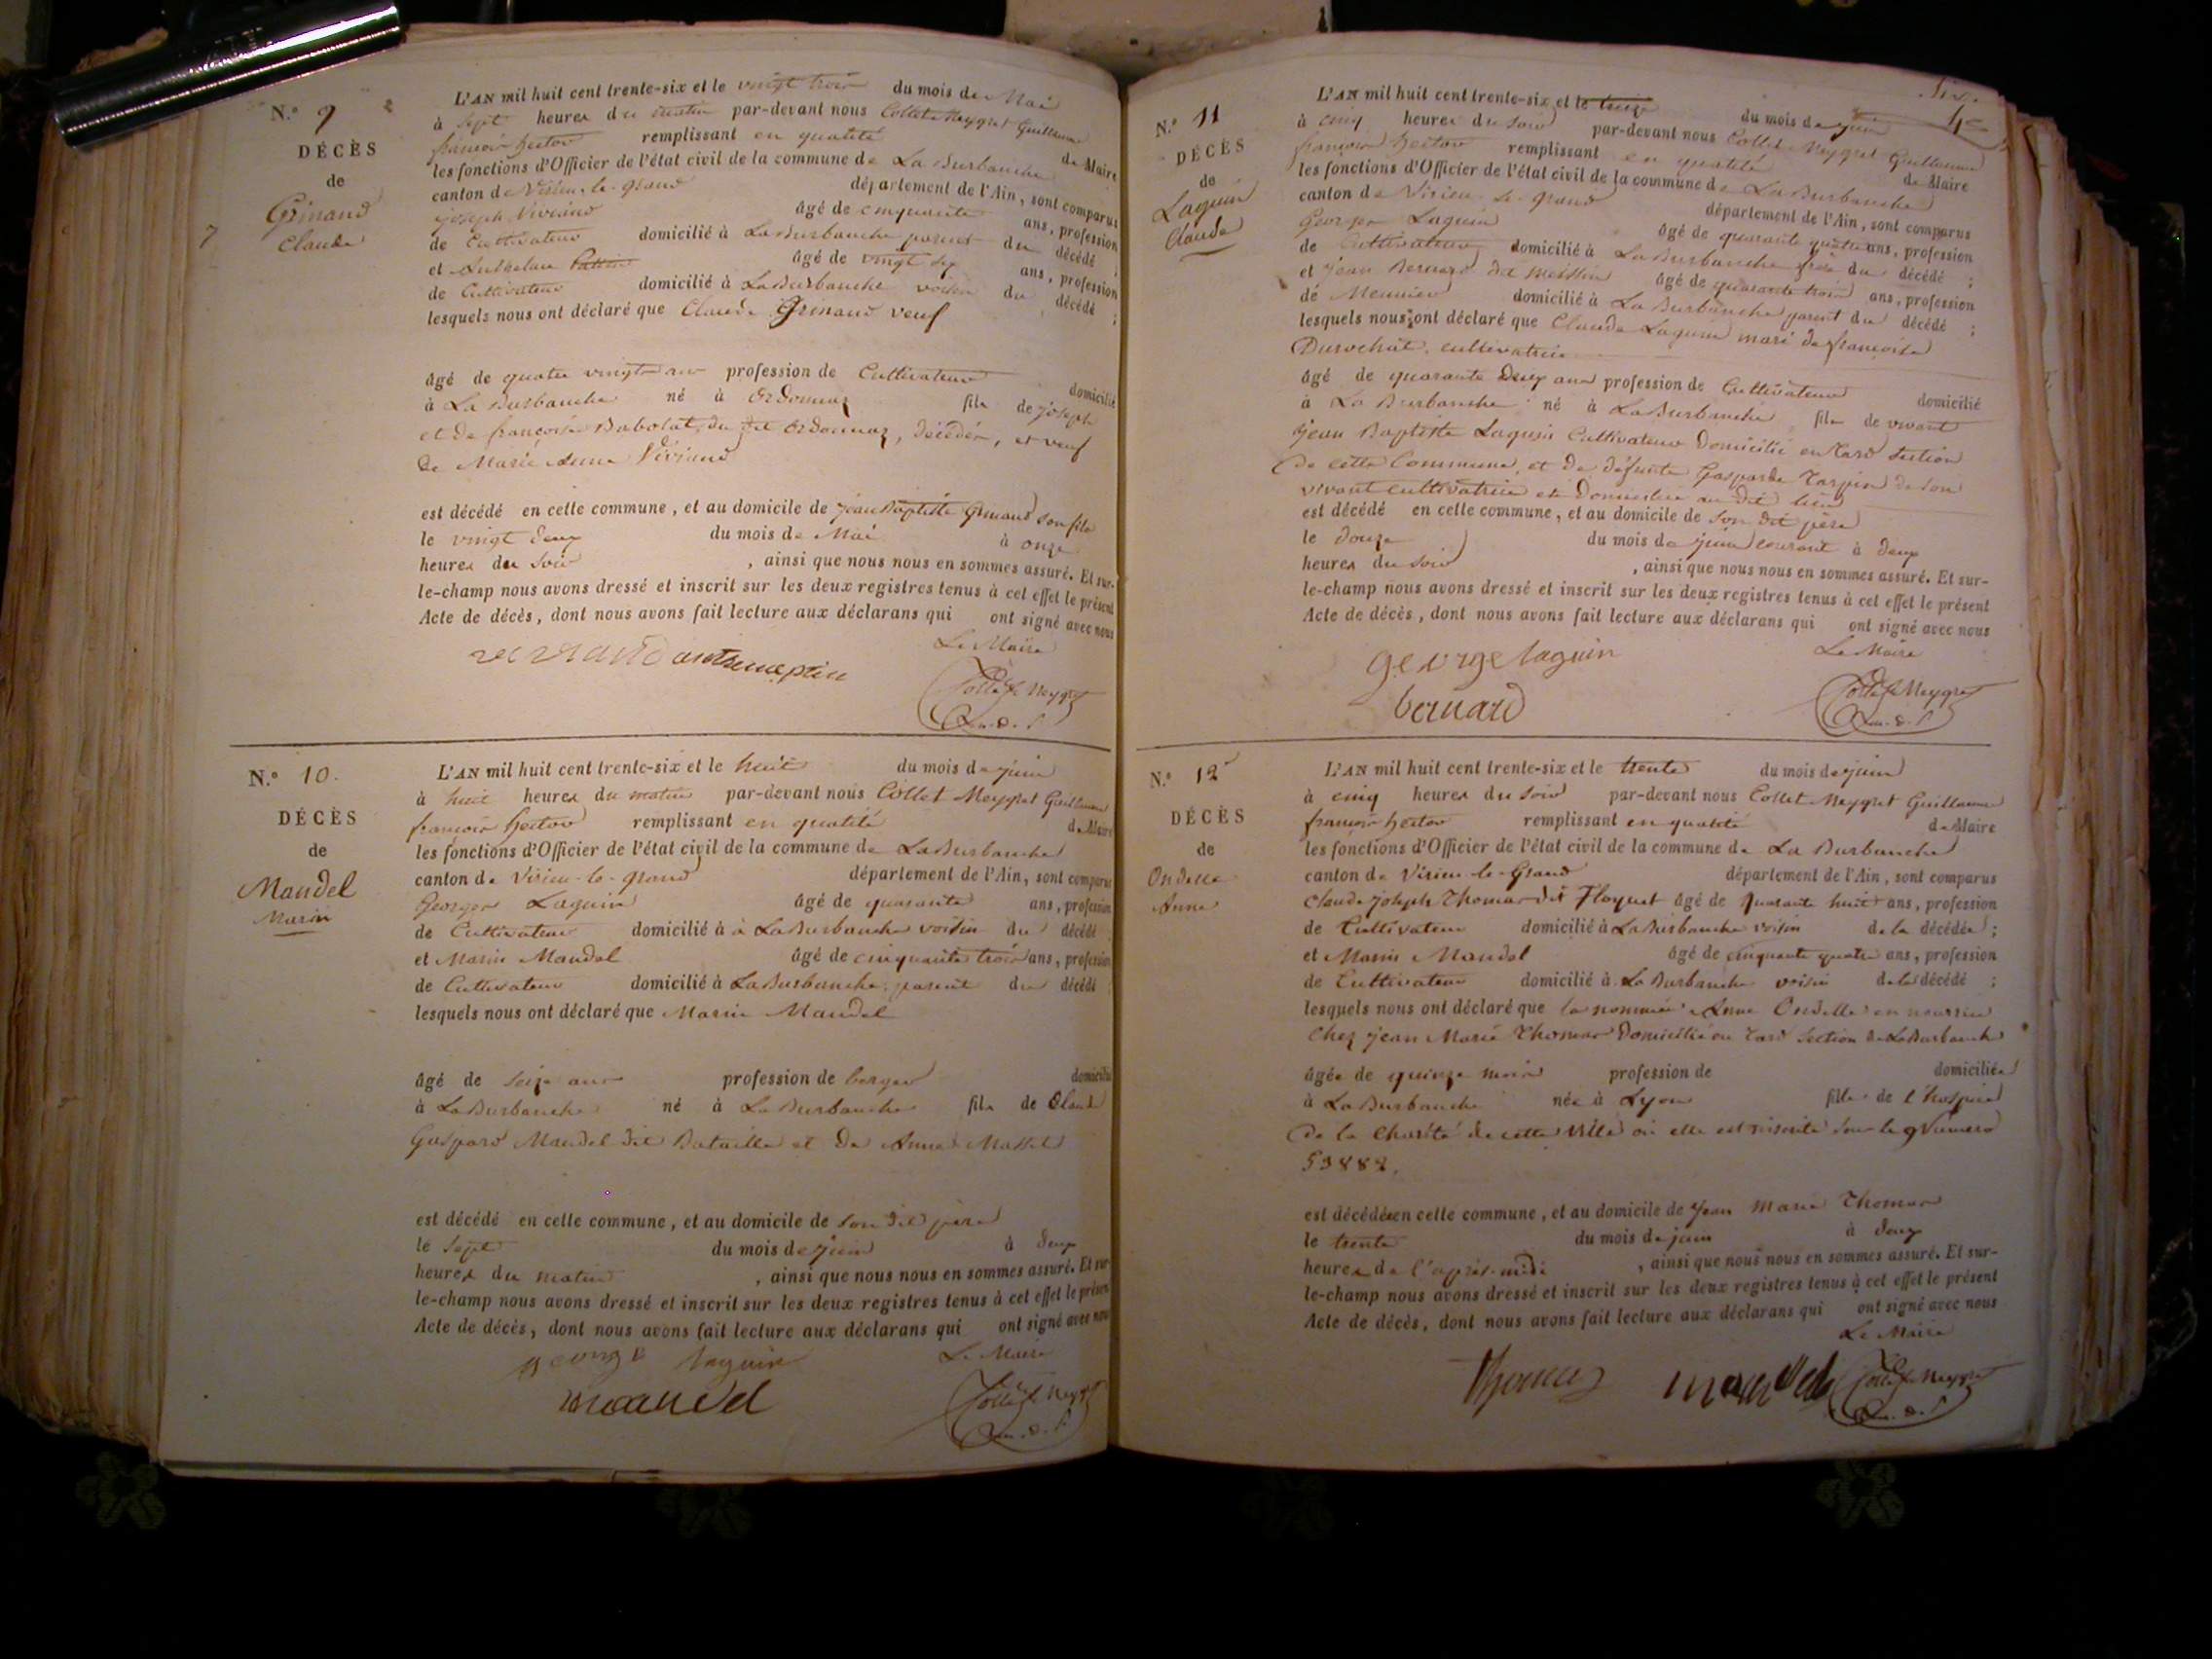 N.º 9
DÉCÈS
de
Grinand
Claude
7
L'AN mil huit cent trente-six et le vingt trois du mois de Mai
à sept heures du matin par-devant nous Collet Meygret Guillaume
françois hector remplissant en qualité de Maire
les fonctions d'Officier de l'état civil de la commune de La Burbanche
canton de Virieu-le-grand département de l'Ain, sont comparus
joseph Viviand âgé de cinquante ans, profession
de Cultivateur domicilié à La Burbanche parent du décédé ;
et Anthelme âgé de vingt six ans, profession
de Cultivateur domicilié à La Burbanche voisin du décédé ;
lesquels nous ont déclaré que Claude Grinand veuf
âgé de quatre vingts ans profession de Cultivateur domicilié
à La Burbanche né à Ordonnaz fils de joseph
et de françoise Babolat, du dit Ordonnaz, décédés, et veuf
de Marie Anne Viviand
est décédé en cette commune, et au domicile de jean Baptiste Grinand son fils
le vingt deux du mois de Mai à onze
heures du soir , ainsi que nous nous en sommes assuré. Et sur-
le-champ nous avons dressé et inscrit sur les deux registres tenus à cet effet le présent
Acte de décès, dont nous avons fait lecture aux déclarans qui ont signé avec nous
Le Maire
Collet Meygret
N.º 10.
DÉCÈS
de
Mandel
Marin
L'AN mil huit cent trente-six et le huit du mois de juin
à huit heures du matin par-devant nous Collet Meygret Guillaume
françois hector remplissant en qualité de Maire
les fonctions d'Officier de l'état civil de la commune de La Burbanche
canton de Virieu-le-grand département de l'Ain, sont comparus
Georges Laguin âgé de quarante ans, profession
de Cultivateur domicilié à à La Burbanche voisin du décédé
et Marin Mandel âgé de cinquante trois ans, profession
de Cultivateur domicilié à La Burbanche parent du décédé
lesquels nous ont déclaré que Marin Mandel
âgé de seize ans profession de berger domicilié
à La Burbanche né à La Burbanche fils de Claude
Gaspard Mandel dit Bataille et de Anne Massel
est décédé en cette commune, et au domicile de son dit père
le sept du mois de juin à deux
heures du matin , ainsi que nous nous en sommes assuré. Et sur
le-champ nous avons dressé et inscrit sur les deux registres tenus à cet effet le présen
Acte de décès, dont nous avons fait lecture aux déclarans qui ont signé avec nou
george laguin
Le Maire
mandel
Collet Meygret
six.
N.º 11
DÉCÈS
de
Laguin
Claude
L'AN mil huit cent trente-six et le treize du mois de juin
à cinq heures du soir par-devant nous Collet Meygret Guillaume
françois hector remplissant en qualité de Maire
les fonctions d'Officier de l'état civil de la commune de La Burbanche
canton de Virieu-le-grand département de l'Ain, sont comparus
Georges Laguin âgé de quarante quatre ans, profession
de Cultivateur domicilié à La Burbanche frère du décédé ;
et jean Bernard dit âgé de quarante trois ans, profession
de Meunier domicilié à La Burbanche parent du décédé ;
lesquels nous ont déclaré que Claude Laguin mari de françoise
Durochat, cultivatrice
âgé de quarante deux ans profession de Cultivateur domicilié
à La Burbanche né à La Burbanche fils de vivant
jean Baptiste Laguin Cultivateur Domicilié en Tard section
de cette Commune, et de défunte Gasparde Tarpin de son
vivant cultivatrice et Domiciliée au dit lieu
est décédé en cette commune, et au domicile de son dit père
le douze du mois de juin courant à deux
heures du soir , ainsi que nous nous en sommes assuré. Et sur-
le-champ nous avons dressé et inscrit sur les deux registres tenus à cet effet le présent
Acte de décès, dont nous avons fait lecture aux déclarans qui ont signé avec nous
george laguin
Le Maire
bernard
Collet Meygret
N.º 12
DÉCÈS
de
Ondelle
Anne
L'AN mil huit cent trente-six et le trente du mois de juin
à cinq heures du soir par-devant nous Collet Meygret Guillaume
françois hector remplissant en qualité de Maire
les fonctions d'Officier de l'état civil de la commune de La Burbanche
canton de Virieu-le-Grand département de l'Ain, sont comparus
Claude joseph Thomas dit Floquet âgé de quarante huit ans, profession
de Cultivateur domicilié à La Burbanche voisin de la décédée ;
et Marin Mandel âgé de cinquante quatre ans, profession
de Cultivateur domicilié à La Burbanche voisin de la décédé ;
lesquels nous ont déclaré que la nommée Anne Ondelle en nourrice
chez jean Marie Thomas Domicilié en Tard section de La Burbanche
âgée de quinze mois profession de domiciliée
à La Burbanche née à Lyon fille de l'hospice
de la charité de cette ville où elle est inscrite sous le Numéro
59882.
est décédée en cette commune, et au domicile de jean Marie Thomas
le trente du mois de juin à deux
heures de l'après-midi , ainsi que nous nous en sommes assuré. Et sur-
le-champ nous avons dressé et inscrit sur les deux registres tenus à cet effet le présent
Acte de décès, dont nous avons fait lecture aux déclarans qui ont signé avec nous
Le Maire
Thomas mandel Collet Meygret